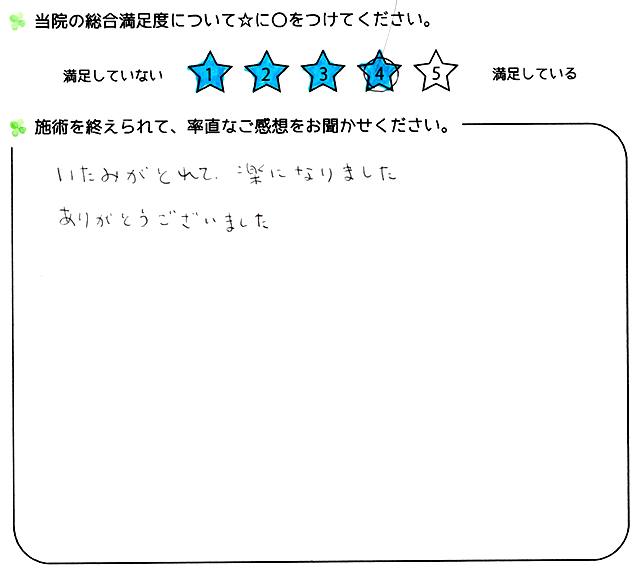 当院の総合満足度について☆に○をつけてください。
満足していない 1 2 3 4 5 満足している
施術を終えられて、率直なご感想をお聞かせください。
いたみがとれて、楽になりました
ありがとうございました